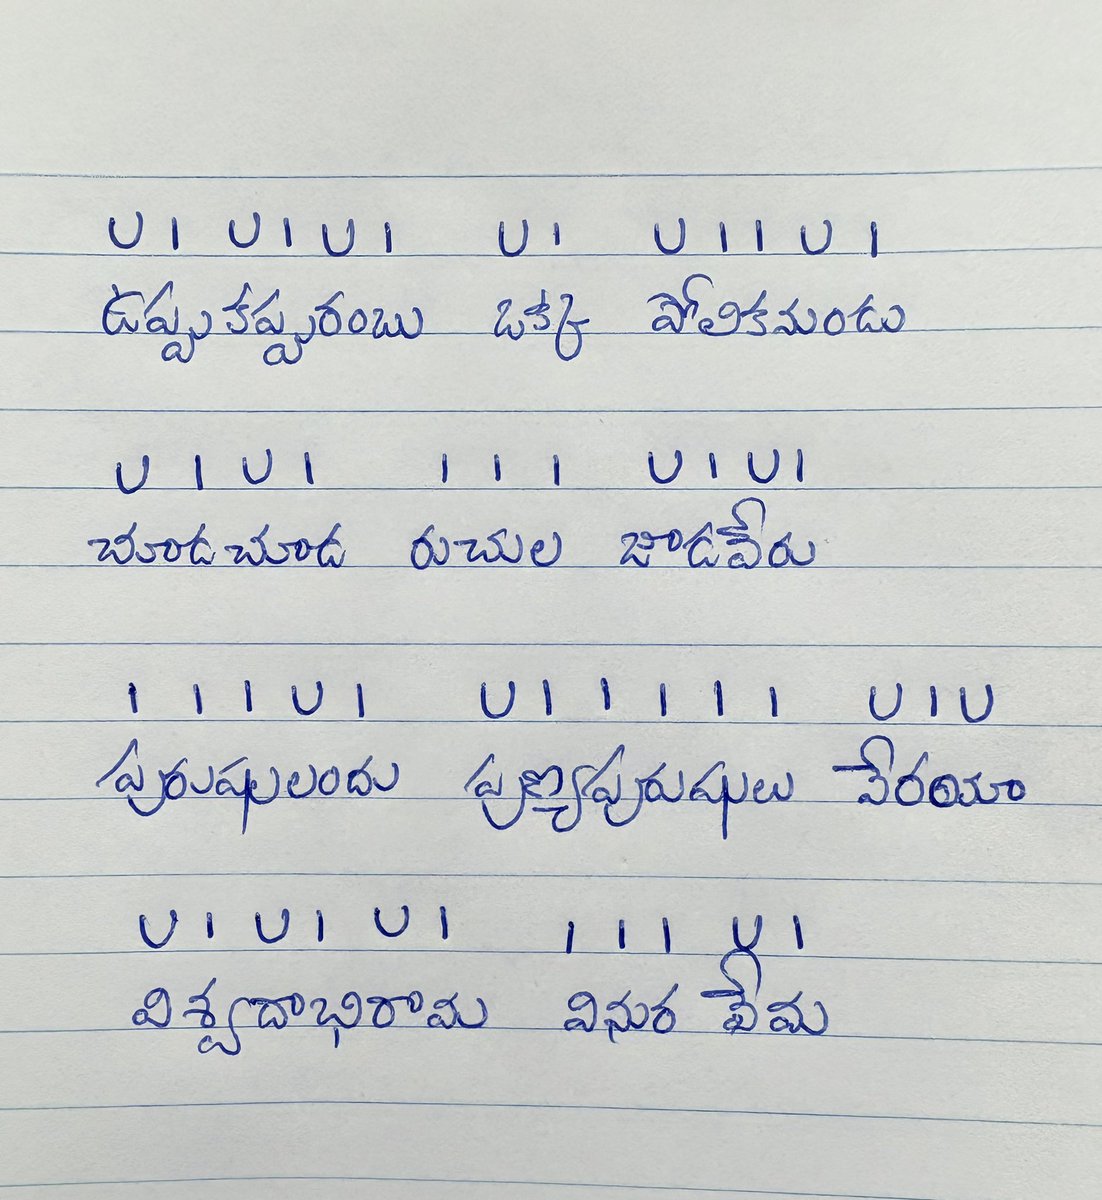 U I U I U I U I U I I U I
ఉప్పుకప్పురంబు ఒకక్క పోలికనుండు
U I U I I I I U I U I
చూడచూడ రుచుల జాడవేరు
I I I U I U I I I I I U I U
పురుషులలందు పుణ్యపురుషులు వేరయా
U I U I U I I I I U I
విశ్వదాభిరామ వినుర వేమ